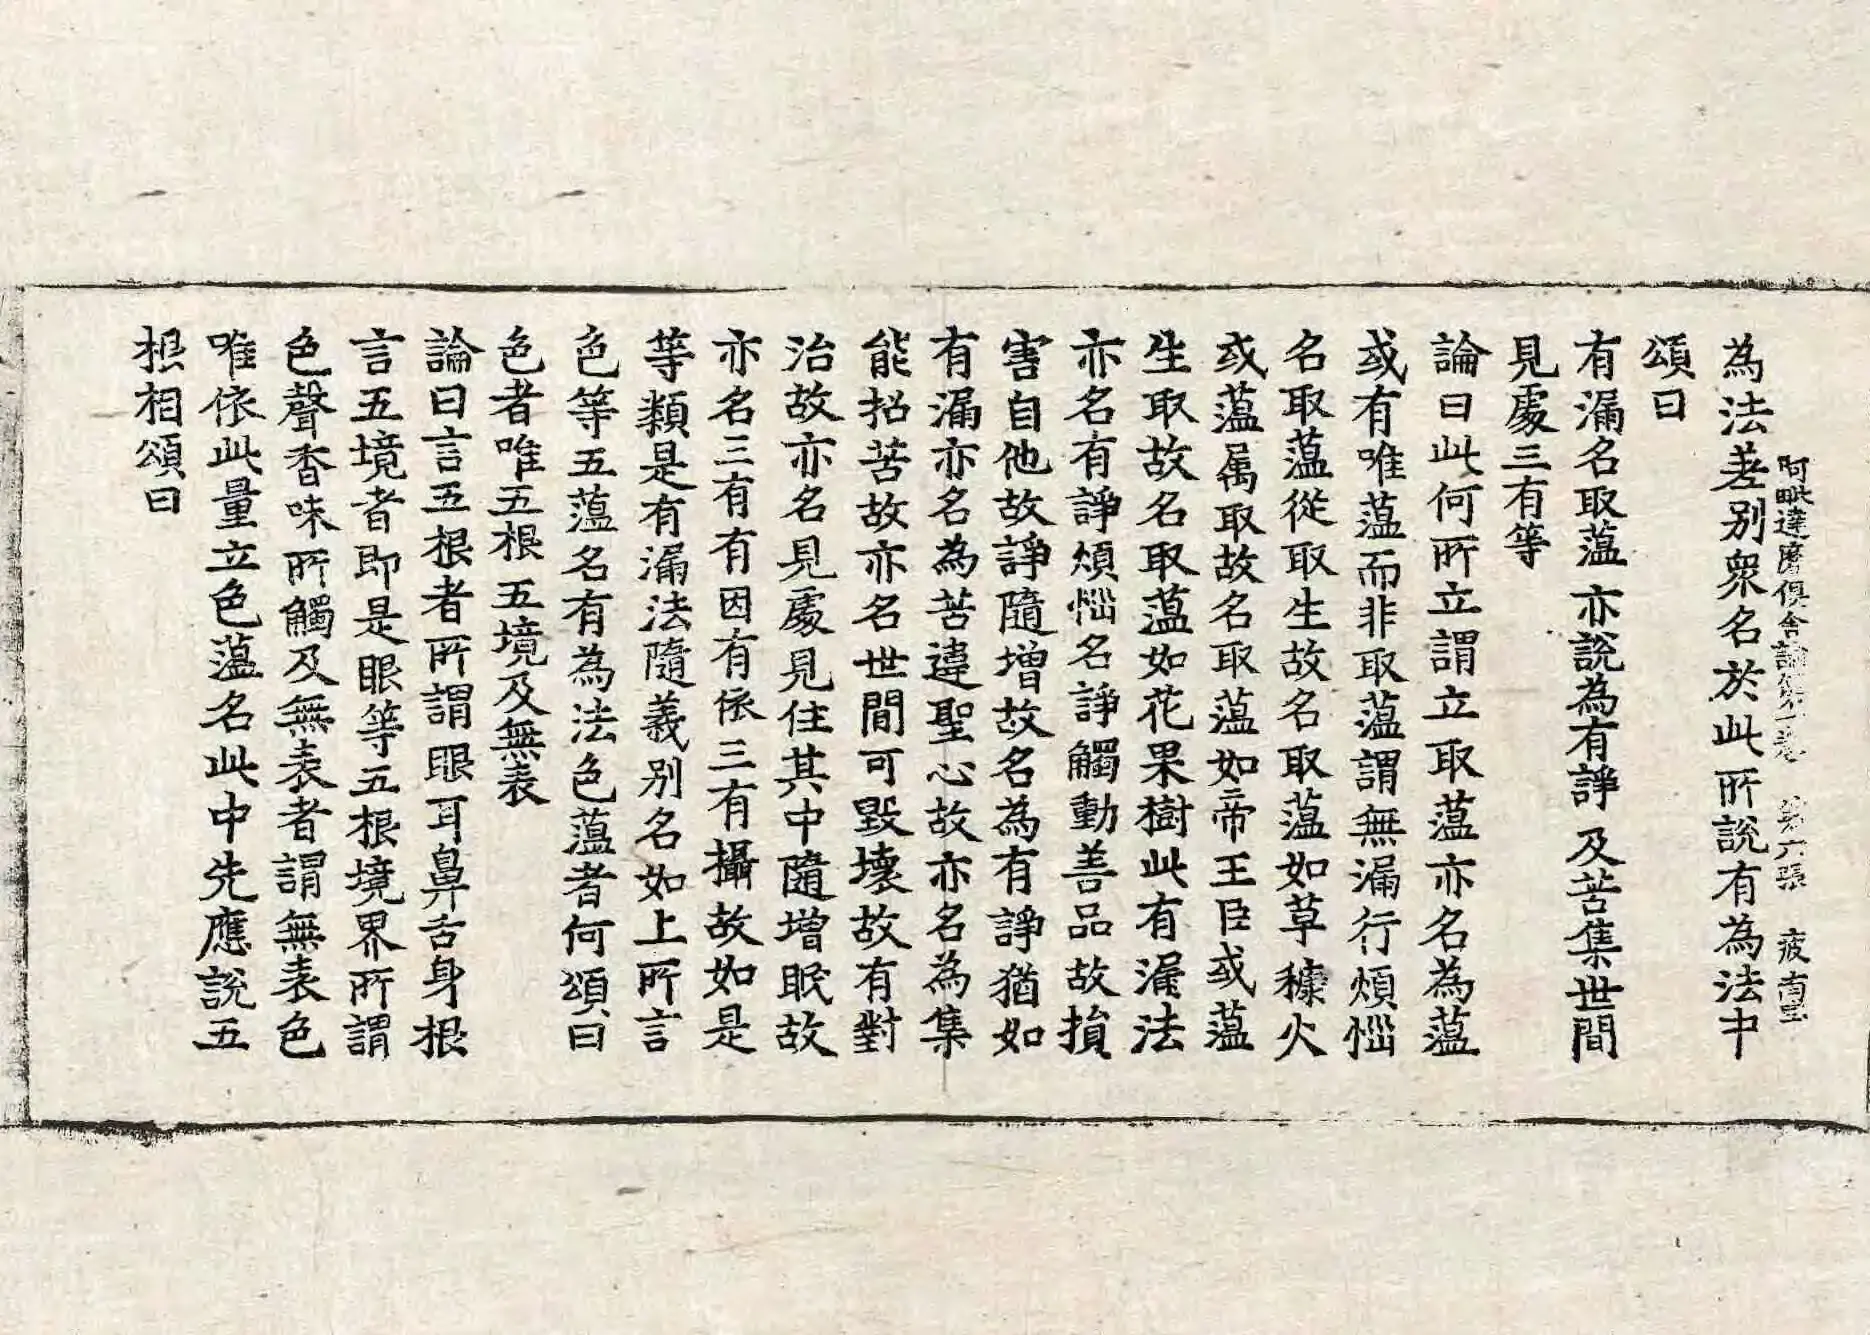 阿毗達磨俱舍論第一卷 第六張 疲
為法差別衆名於此所說有為法中
頌曰
有漏名取蘊 亦說為有諍 及苦集世間
見處三有等
論曰此何所立謂立取蘊亦名為蘊
或有唯蘊而非取蘊謂無漏行煩惱
名取蘊從取生故名取蘊如草糠火
或蘊属取故名取蘊如帝王臣或蘊
生取故名取蘊如花果樹此有漏法
亦名有諍煩惱名諍觸動善品故損
害自他故諍隨增故名為有諍猶如
有漏亦名為苦違聖心故亦名為集
能招苦故亦名世間可毀壞故有對
治故亦名見處見住其中隨增眠故
亦名三有有因有依三有攝故如是
等類是有漏法隨義別名如上所言
色等五蘊名有為法色蘊者何頌曰
色者唯五根 五境及無表
論曰言五根者所謂眼耳鼻舌身根
言五境者即是眼等五根境界所謂
色聲香味所觸及無表者謂無表色
唯依此量立色蘊名此中先應說五
根相頌曰